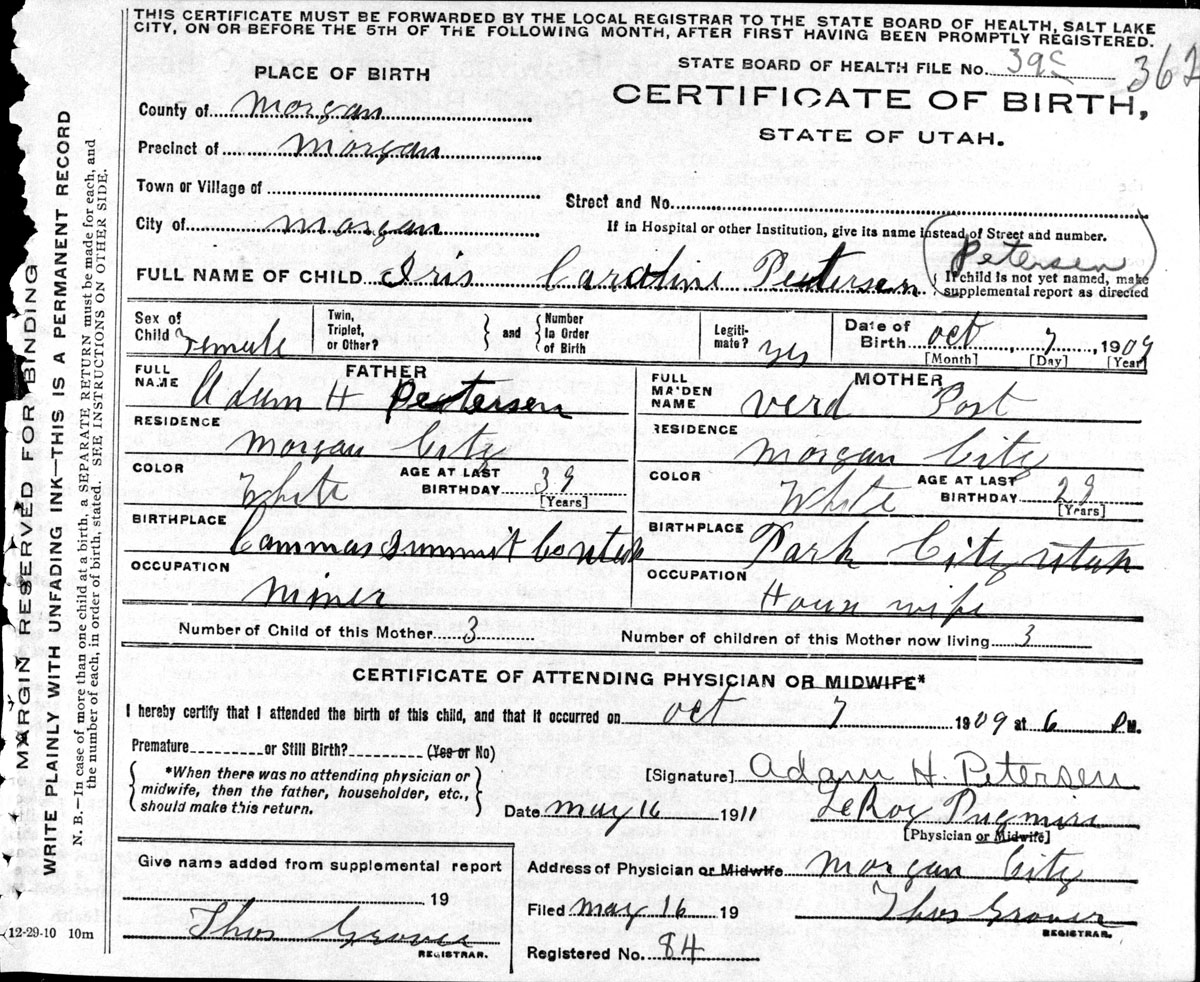 THIS CERTIFICATE MUST BE FORWARDED BY THE LOCAL REGISTRAR TO THE STATE BOARD OF HEALTH, SALT LAKE
CITY, ON OR BEFORE THE 5TH OF THE FOLLOWING MONTH, AFTER FIRST HAVING BEEN PROMPTLY REGISTERED.
STATE BOARD OF HEALTH FILE No. 362
PLACE OF BIRTH
CERTIFICATE OF BIRTH,
STATE OF UTAH.
County of Morgan
Precinct of Morgan
Town or Village of
Street and No.
City of Morgan
If in Hospital or other Institution, give its name instead of Street and number.
Petersen
FULL NAME OF CHILD Iris Caroline Petersen
If child is not yet named, make
supplemental report as directed
Sex of
Child Female
Twin,
Triplet,
or Other?
and
Number
in Order
of Birth
Legiti-
mate? yes
Date of
Birth Oct 7, 1909
[Month] [Day] [Year]
FATHER
FULL
NAME Adam H Petersen
RESIDENCE
Morgan City
COLOR White
AGE AT LAST
BIRTHDAY 39
[Years]
BIRTHPLACE
Cammas Summit Co Utah
OCCUPATION
Miner
MOTHER
FULL
MAIDEN
NAME Verd Post
RESIDENCE
Morgan City
COLOR White
AGE AT LAST
BIRTHDAY 29
[Years]
BIRTHPLACE
Park City Utah
OCCUPATION
House wife
Number of Child of this Mother 3
Number of children of this Mother now living 3
CERTIFICATE OF ATTENDING PHYSICIAN OR MIDWIFE*
I hereby certify that I attended the birth of this child, and that it occurred on Oct 7 1909 at 6 PM.
Premature or Still Birth? (Yes or No)
*When there was no attending physician or
midwife, then the father, householder, etc.,
should make this return.
[Signature] Adam H. Petersen
Date May 16 1911 LeRoy Pugmire
[Physician or Midwife]
Give name added from supplemental report
19
Thos Grover
REGISTRAR.
Address of Physician or Midwife Morgan City
Filed May 16 19 Thos Grover
REGISTRAR.
Registered No. 84
12-29-10 10m
MARGIN RESERVED FOR BINDING
WRITE PLAINLY WITH UNFADING INK—THIS IS A PERMANENT RECORD
N. B.—In case of more than one child at a birth, a SEPARATE RETURN must be made for each, and
the number of each, in order of birth, stated. SEE INSTRUCTIONS ON OTHER SIDE.